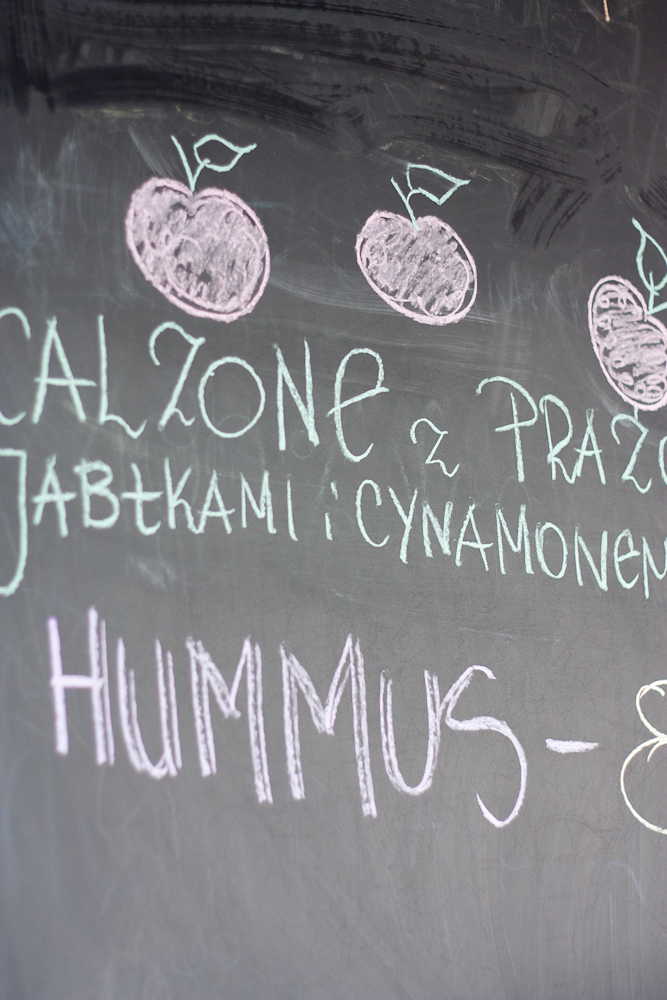 CALZONE z PRAŻO
JABŁKAMI i CYNAMONEM
HUMMUS - 8